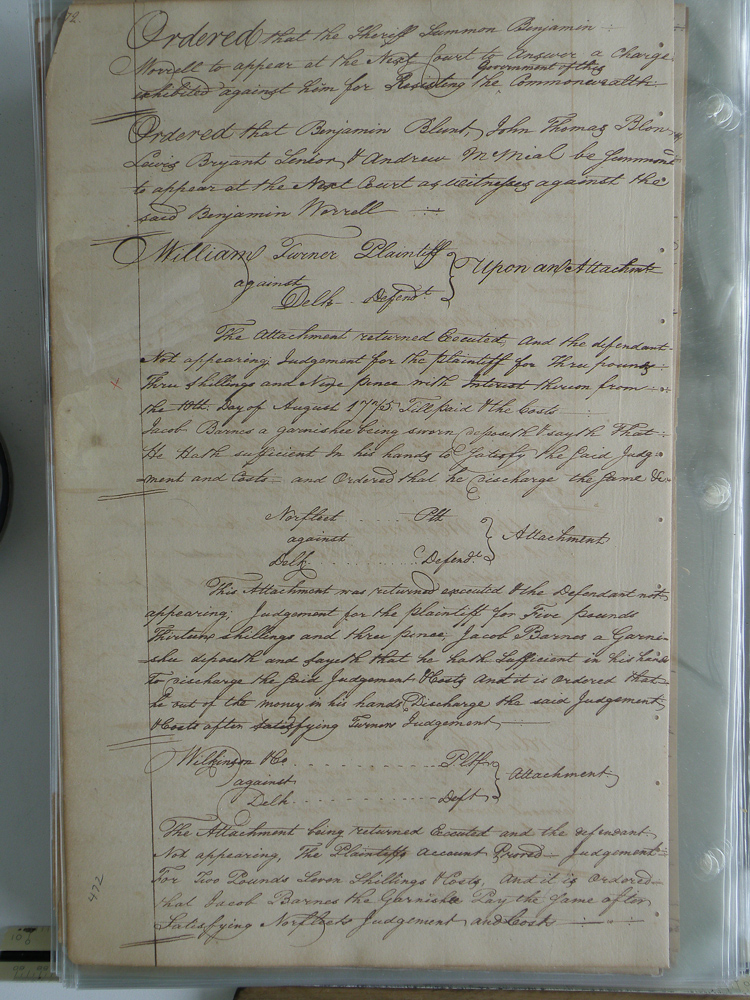 72.
Ordered that the Sheriff Summon Benjamin
Worrell to appear at the Next Court to Answer a charge
Government of this
exhibited against him for Resisting the Commonwealth
Ordered that Benjamin Blunt, John Thomas Blow
Lewis Bryant Senior, & Andrew McMial be Summond
to appear at the Next Court as witnesses against the
said Benjamin Worrell
William Turner Plaintiff
against
Delk Defend.t
Upon an Attachmt
The Attachment returned Executed, And the defendant
Not appearing; Judgement for the Plaintiff for Three pounds
Three shillings and Nine pence with Interest thereon from
the 10th. Day of August 1775. Till paid & the Costs
Jacob Barnes a garnishee being sworn deposeth & sayth That
He Hath sufficient In his hands to Satisfy the Said Judg
ment and Costs and Ordered that he Discharge the Same &c
Norfleet Plt
against
Delk Defend.t
Attachment
This Attachment was returned executed & the Defendant not
appearing; Judgement for the Plaintiff for Five pounds
Thirteen shillings and three pence; Jacob Barnes a Garni
shee deposeth and sayeth that he hath Sufficient in his hands
To Discharge the Said Judgement & Costs And it is ordered that
he out of the money in his hands Discharge the said Judgement
& Costs after satisfying Turners Judgement
Wilkinson & Co. Pltf
against
Delk Deft
Attachment
The Attachment being returned Executed and the defendant
Not appearing, The Plaintiffs account Proved Judgement
For Two Pounds Seven Shillings & Costs, And it is Ordered
that Jacob Barnes the Garnishee Pay the Same after
Satisfying Norfleets Judgement and Costs
472